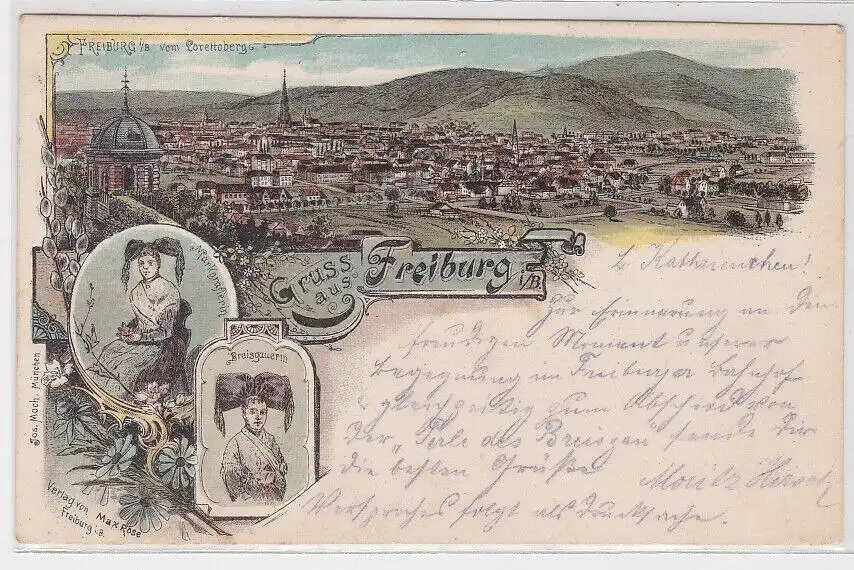 FREIBURG i/B vom Lorettoberg
Gruss
aus
Freiburg
i/B
Markgräflerin
Breisgauerin
Jos. Moch. München
Verlag von Max Rose
Freiburg i/B.
L. Kathrienchen!
Zur Erinnerung an den
freudigen Moment unserer
Begegnung im Freiburger Bahnhof
gleichzeitig zum Abschied von
der "Perle des Breisgau" sende Dir
die besten Grüße
Moritz
Versprochenes folgt als Drucksache.